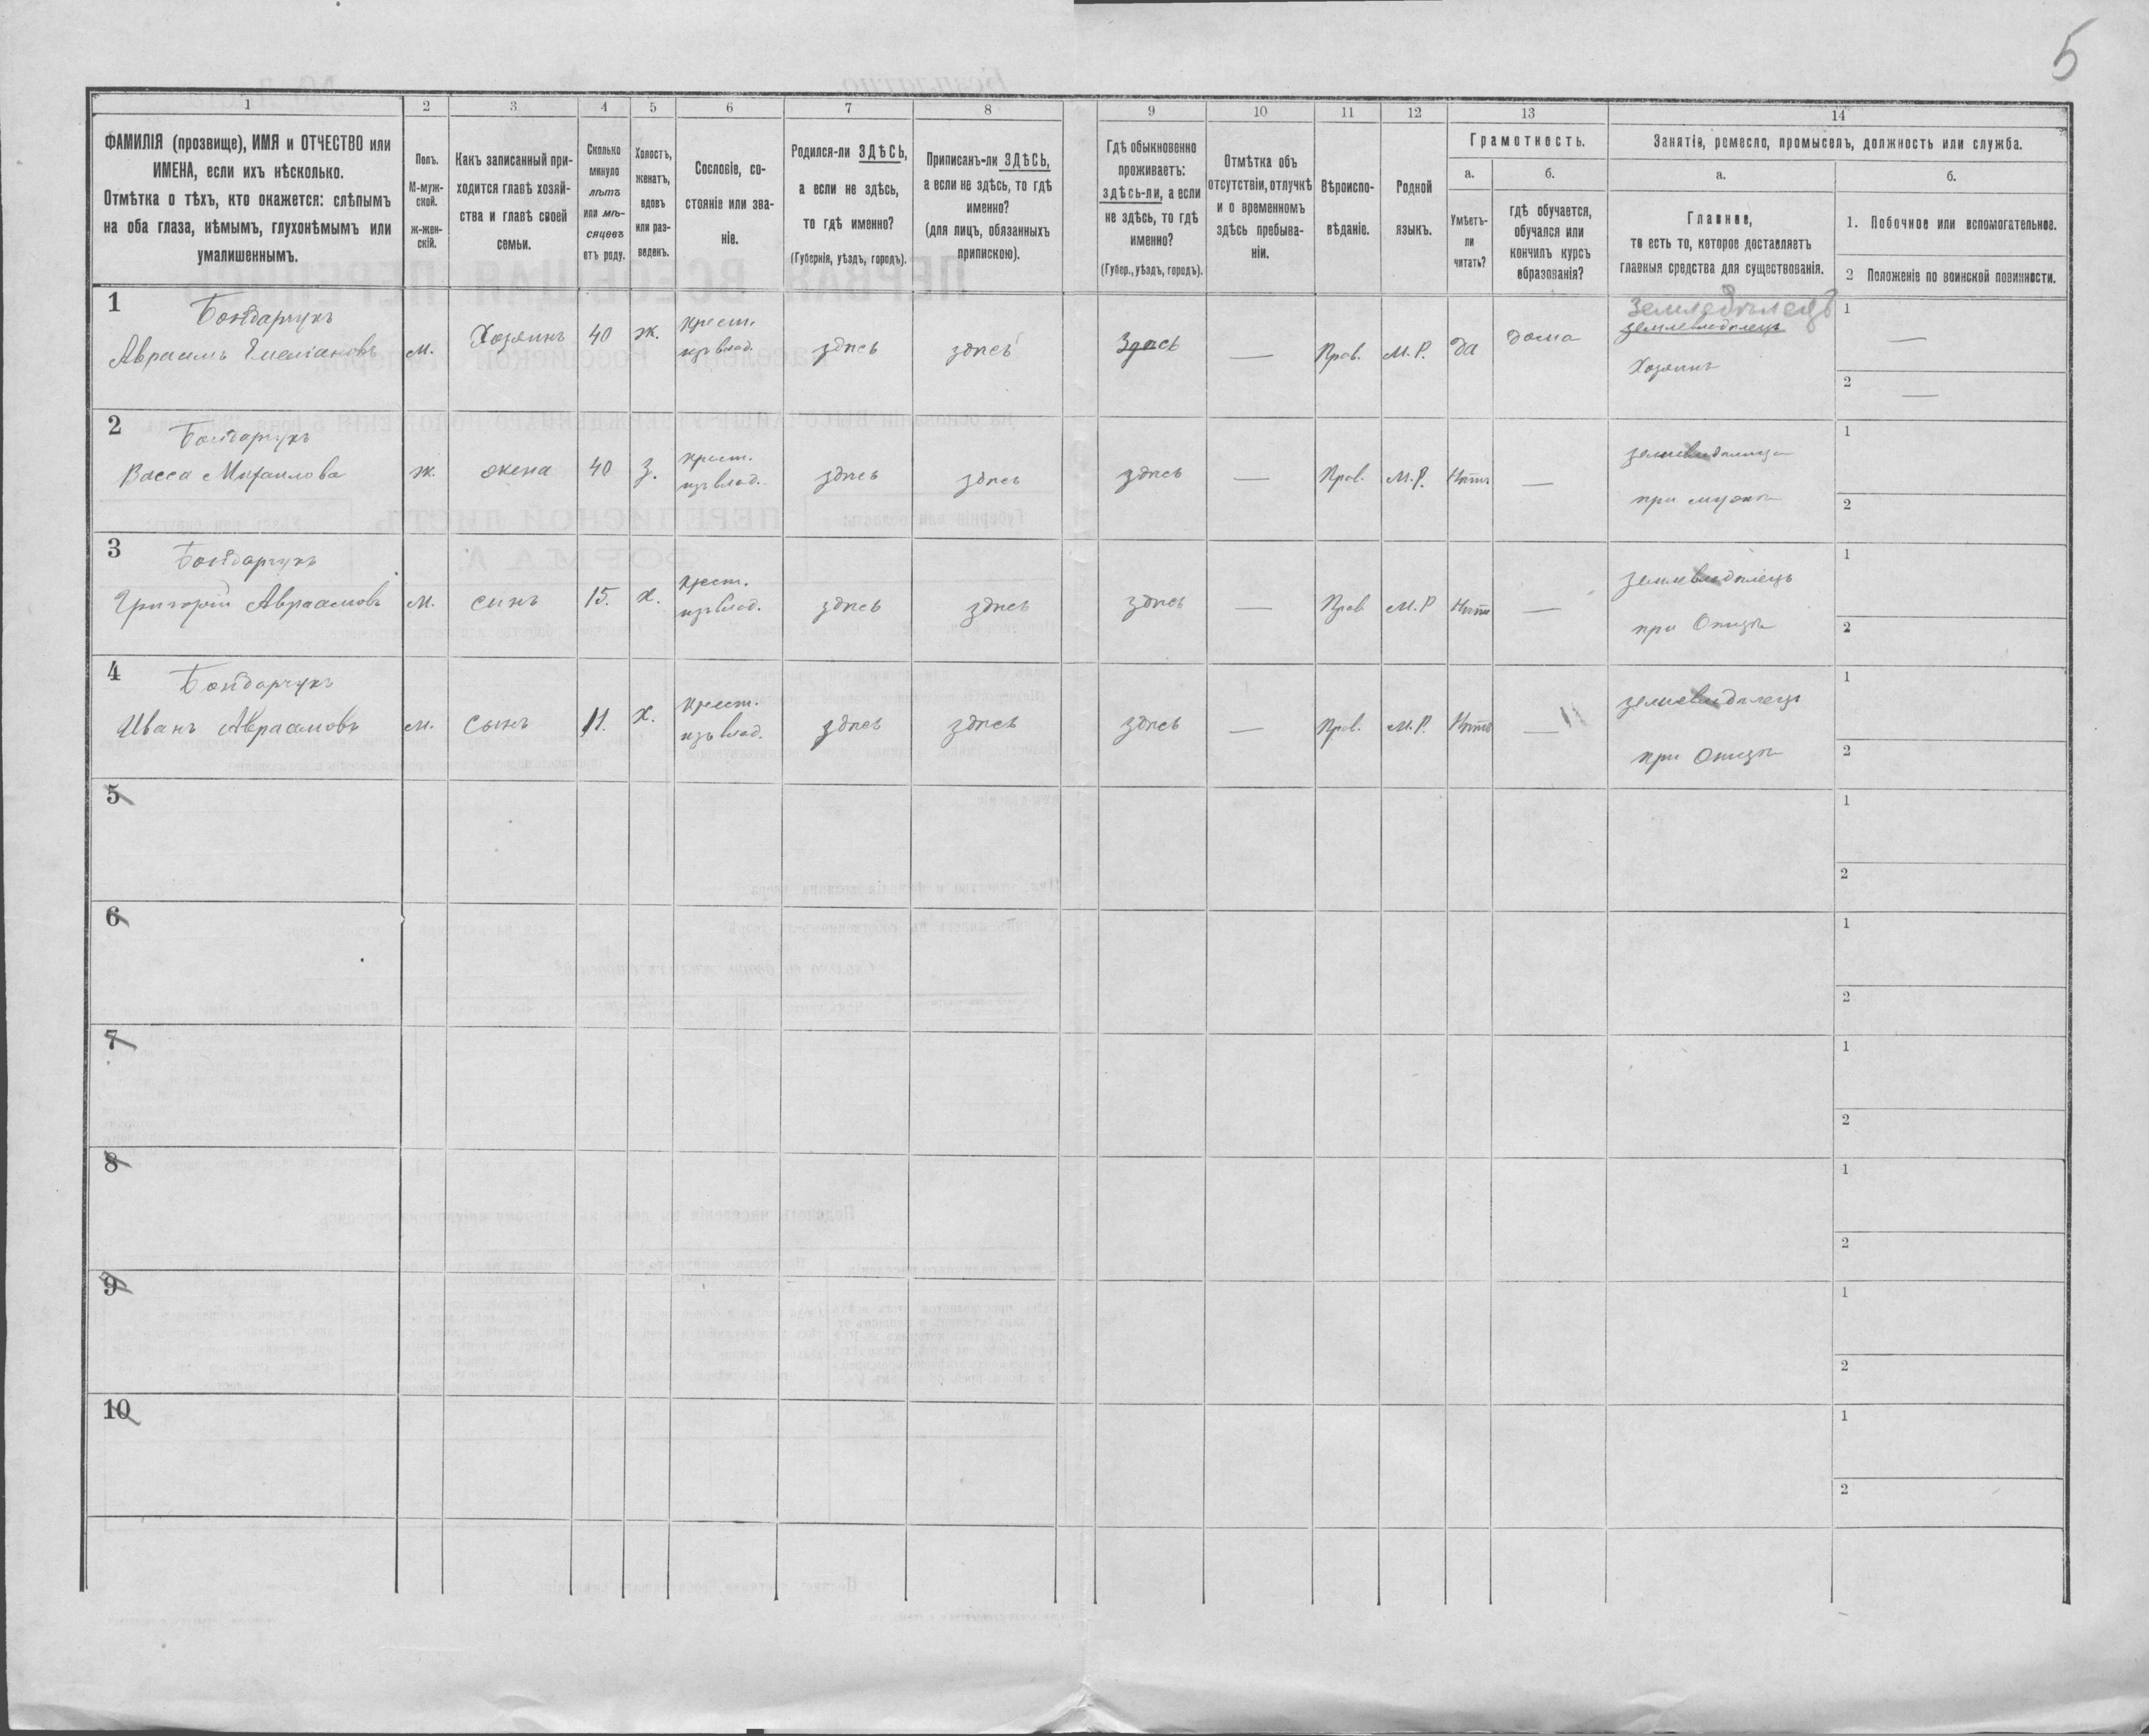 5
1 2 3 4 5 6 7 8 9 10 11 12 13 14
ФАМИЛІЯ (прозвище), ИМЯ и ОТЧЕСТВО или
ИМЕНА, если ихъ нѣсколько.
Отмѣтка о тѣхъ, кто окажется: слѣпымъ
на оба глаза, нѣмымъ, глухонѣмымъ или
умалишеннымъ.
Полъ.
М-муж-
ской.
ж-жен-
скій.
Какъ записанный при-
ходится главѣ хозяй-
ства и главѣ своей
семьи.
Сколько
минуло
лѣтъ
или мѣ-
сяцевъ
отъ роду.
Холостъ,
женатъ,
вдовъ
или раз-
веденъ.
Сословіе, со-
стояніе или зва-
ніе.
Родился-ли ЗДѢСЬ,
а если не здѣсь,
то гдѣ именно?
(Губернія, уѣздъ, городъ).
Приписанъ-ли ЗДѢСЬ,
а если не здѣсь, то гдѣ
именно?
(для лицъ, обязанныхъ
припискою).
Гдѣ обыкновенно
проживаетъ:
здѣсь-ли, а если
не здѣсь, то гдѣ
именно?
(Губер., уѣздъ, городъ).
Отмѣтка объ
отсутствіи, отлучкѣ
и о временномъ
здѣсь пребыва-
ніи.
Вѣроиспо-
вѣданіе.
Родной
языкъ.
Грамотность.
а.
Умѣетъ-
ли
читать?
б.
гдѣ обучается,
обучался или
кончилъ курсъ
образованія?
Занятіе, ремесло, промыселъ, должность или служба.
а.
Главное,
то есть то, которое доставляетъ
главныя средства для существованія.
б.
1. Побочное или вспомогательное.
2 Положеніе по воинской повинности.
1
Бондарчукъ
Авраамъ Емеліановъ
м.
Хозяинъ
40
ж.
крест.
изъ влад.
здѣсь
здѣсь
Здѣсь
—
Прав.
М. Р.
Да
дома
Земледѣлецъ
землевладѣлецъ
Хозяинъ
1 —
2 —
2
Бондарчукъ
Васса Михаилова
ж.
жена
40
З.
крест.
изъ влад.
здѣсь
здѣсь
здѣсь
—
Прав.
М. Р.
Нѣтъ
—
при мужѣ
1
2
3
Бондарчукъ
Григорій Авраамовъ
м.
сынъ
15.
х.
крест.
изъ влад.
здѣсь
здѣсь
здѣсь
—
Прав
М. Р
Нѣтъ
—
землевладѣлецъ
при Отцѣ
1
2
4
Бондарчукъ
Иванъ Авраамовъ
м.
сынъ
11.
х.
крест.
изъ влад.
здѣсь
здѣсь
здѣсь
—
Прав.
М. Р.
Нѣтъ
—
землевладѣлецъ
при Отцѣ
1
2
5
1
2
6
1
2
7
1
2
8
1
2
9
1
2
10
1
2